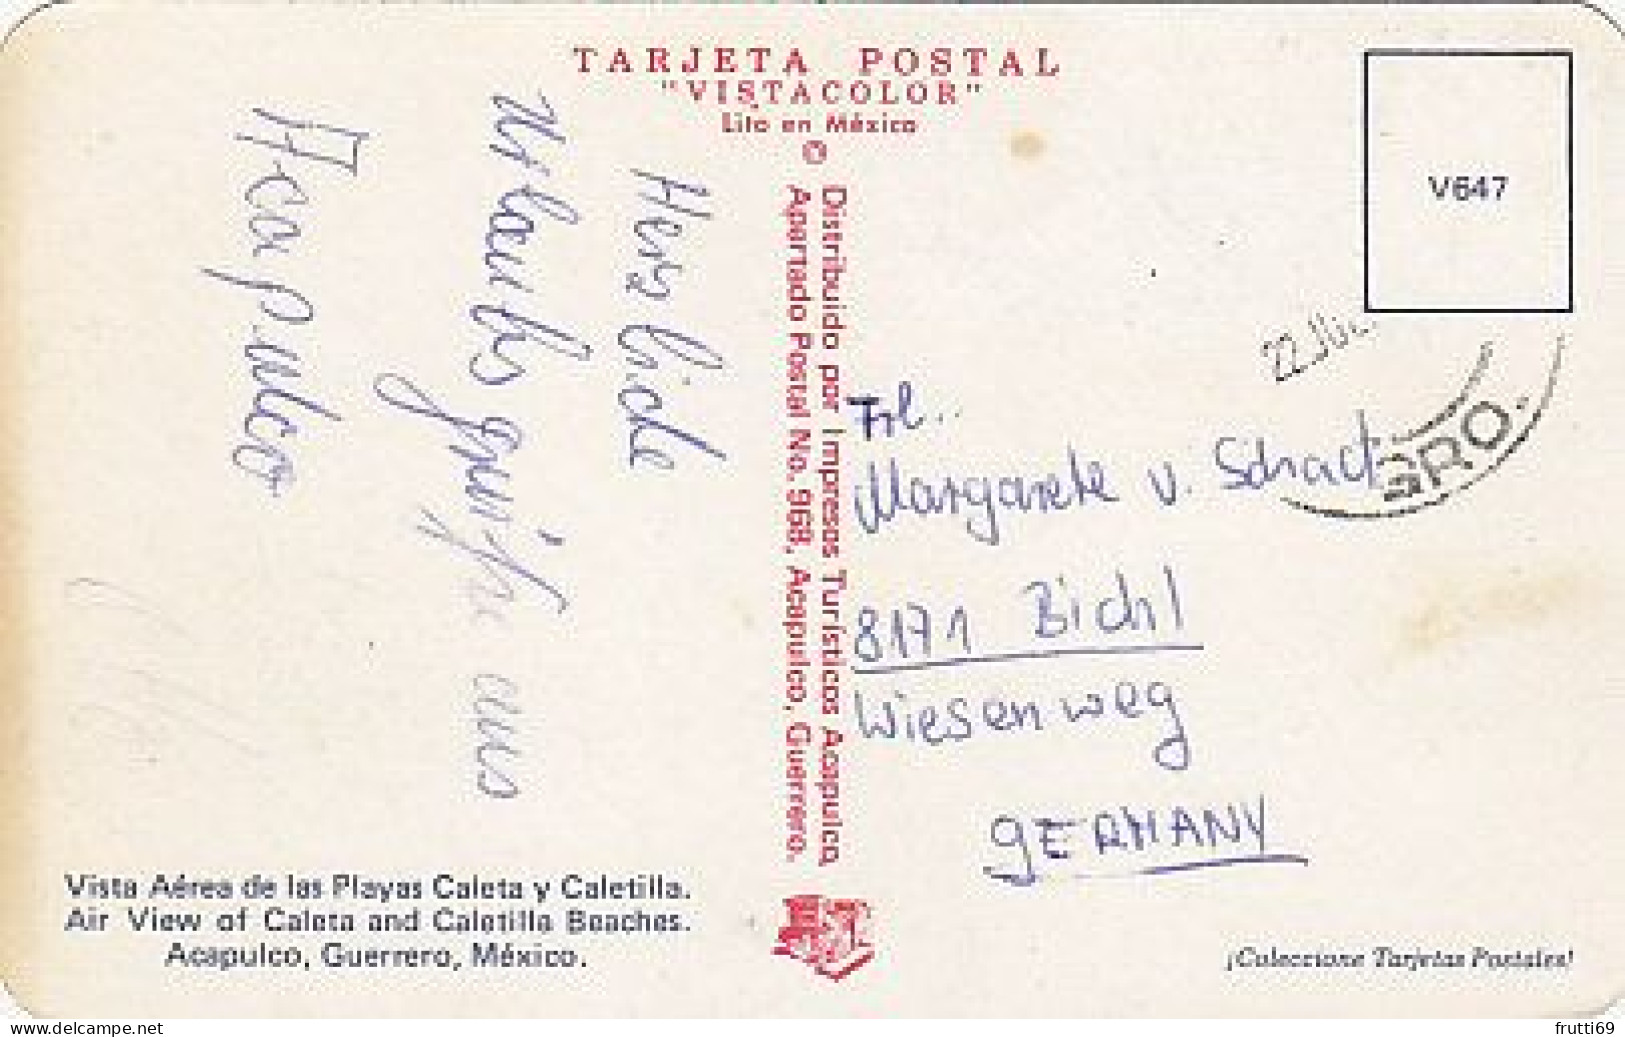 TARJETA POSTAL
"VISTACOLOR"
Lito en México
Distribuido por Impresos Turísticos Acapulco,
Apartado Postal No. 968, Acapulco, Guerrero.
V647
22 JUL.
GRO.
Herzliche
Urlaubsgrüße aus
Acapulco
Frl.
Margarete v. Schacky
8171 Bichl
Wiesenweg
GERMANY
Vista Aérea de las Playas Caleta y Caletilla.
Air View of Caleta and Caletilla Beaches.
Acapulco, Guerrero, México.
¡Coleccione Tarjetas Postales!
www.delcampe.net
frutti69